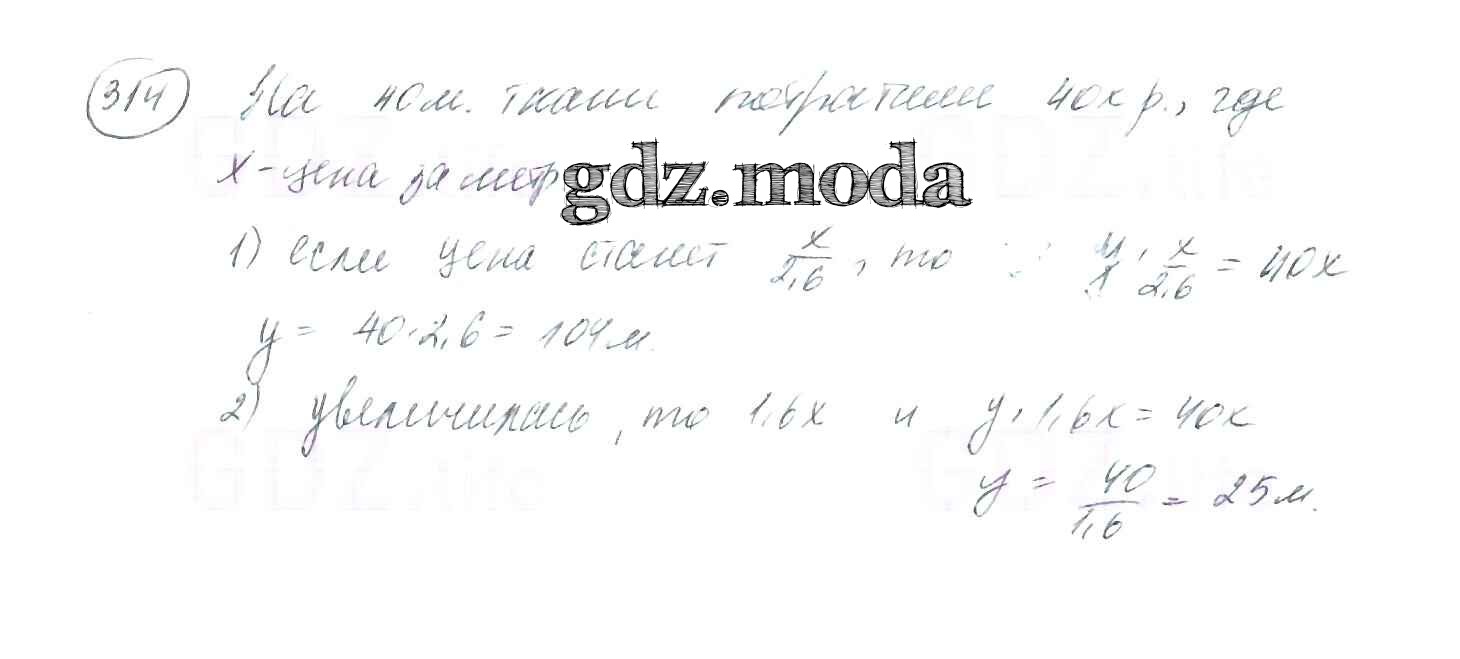 314 На 40 м. ткани потратили 40x р., где
x - цена за метр
gdz.moda
1) если цена станет x/2,6, то y/1 · x/2,6 = 40x
y = 40·2,6 = 104 м.
2) увеличилась, то 1,6x и y·1,6x = 40x
y = 40/1,6 = 25 м.
GDZ.life
GDZ.life
GDZ.life
GDZ.life